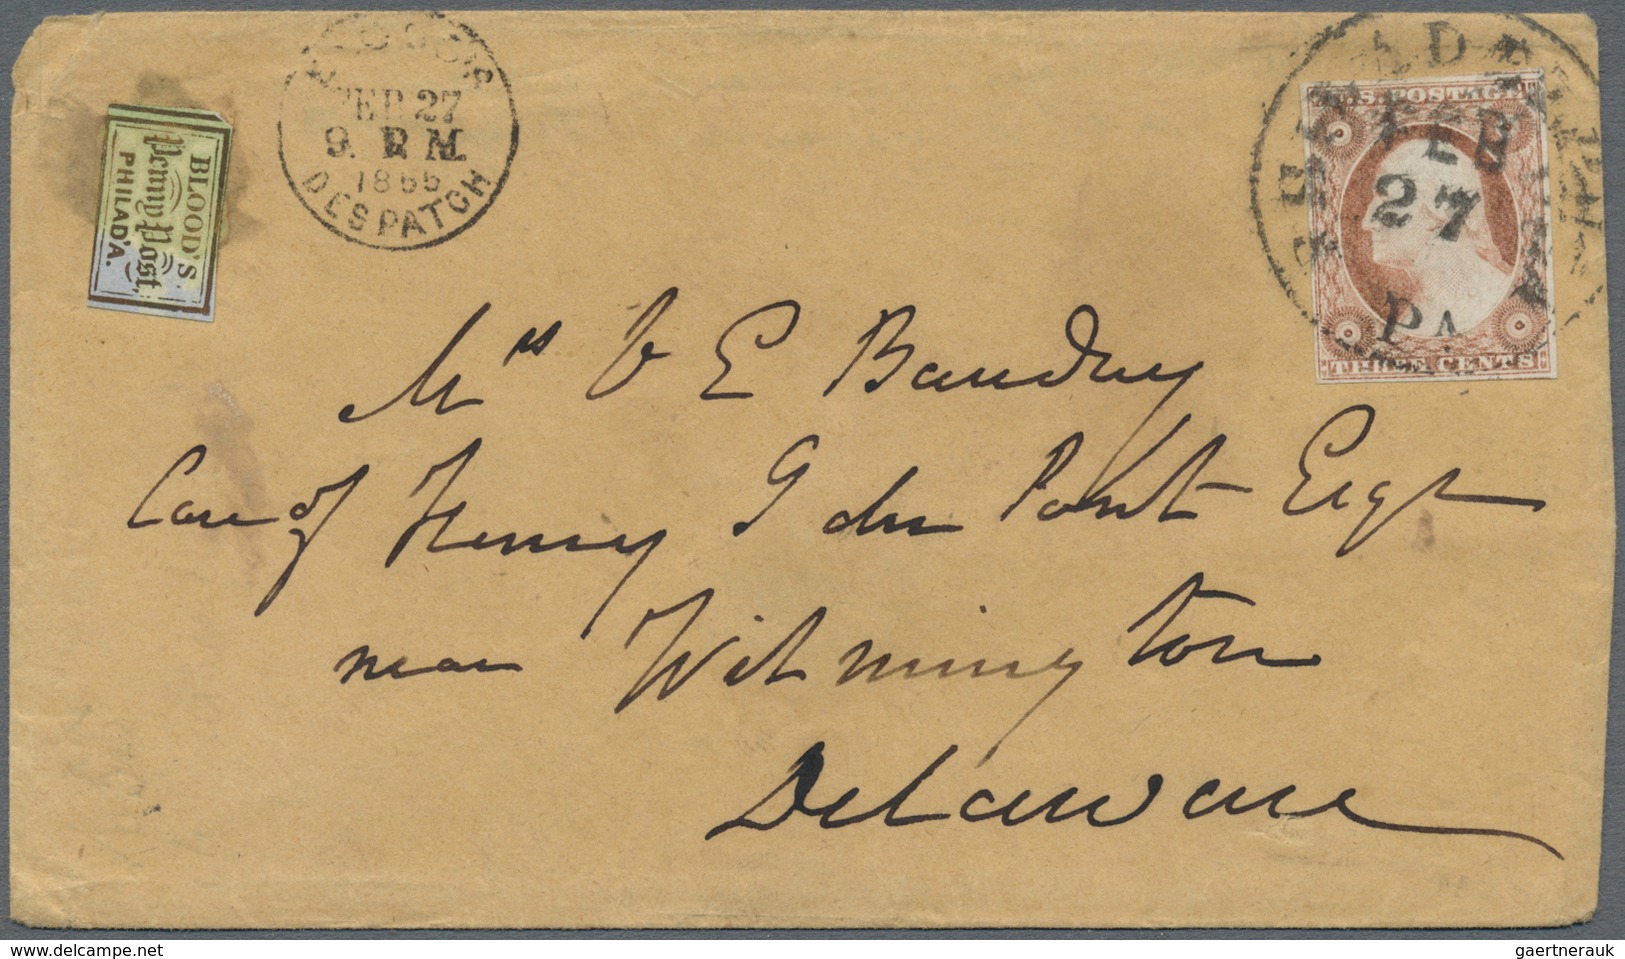 BLOOD'S
Penny Post,
PHILAD'A.
BLOOD'S
FEB 27
9. P.M.
DESPATCH
PHILADELPHIA
FEB
27
PA
U.S. POSTAGE
THREE CENTS
Mrs
E Bauduy
Care of Henry
du Pont Esqr
near Wilmington
Delaware
www.delcampe.net
gaertnerauk